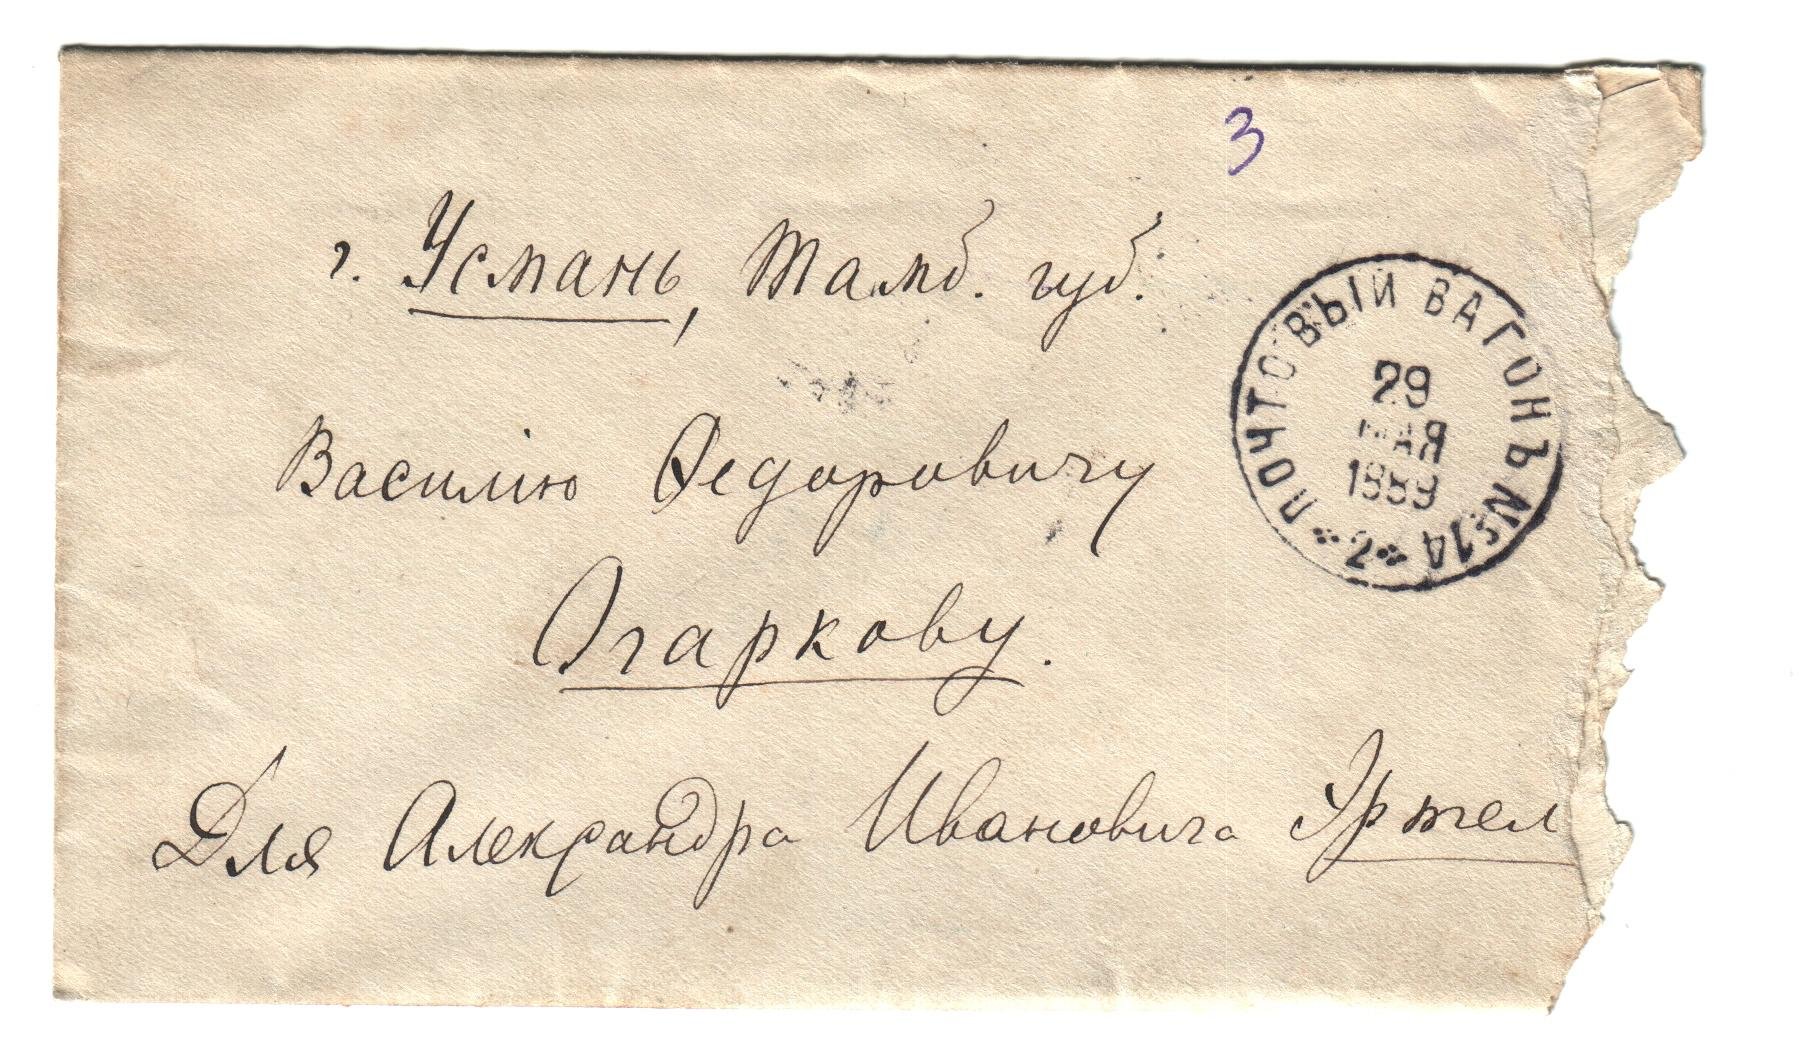 3
г. Усмань, Тамб. губ.
Василію Федоровичу
Огаркову.
Для Александра Ивановича Эртел
ПОЧТОВЫЙ ВАГОНЪ №14
29
МАЯ
1889
2